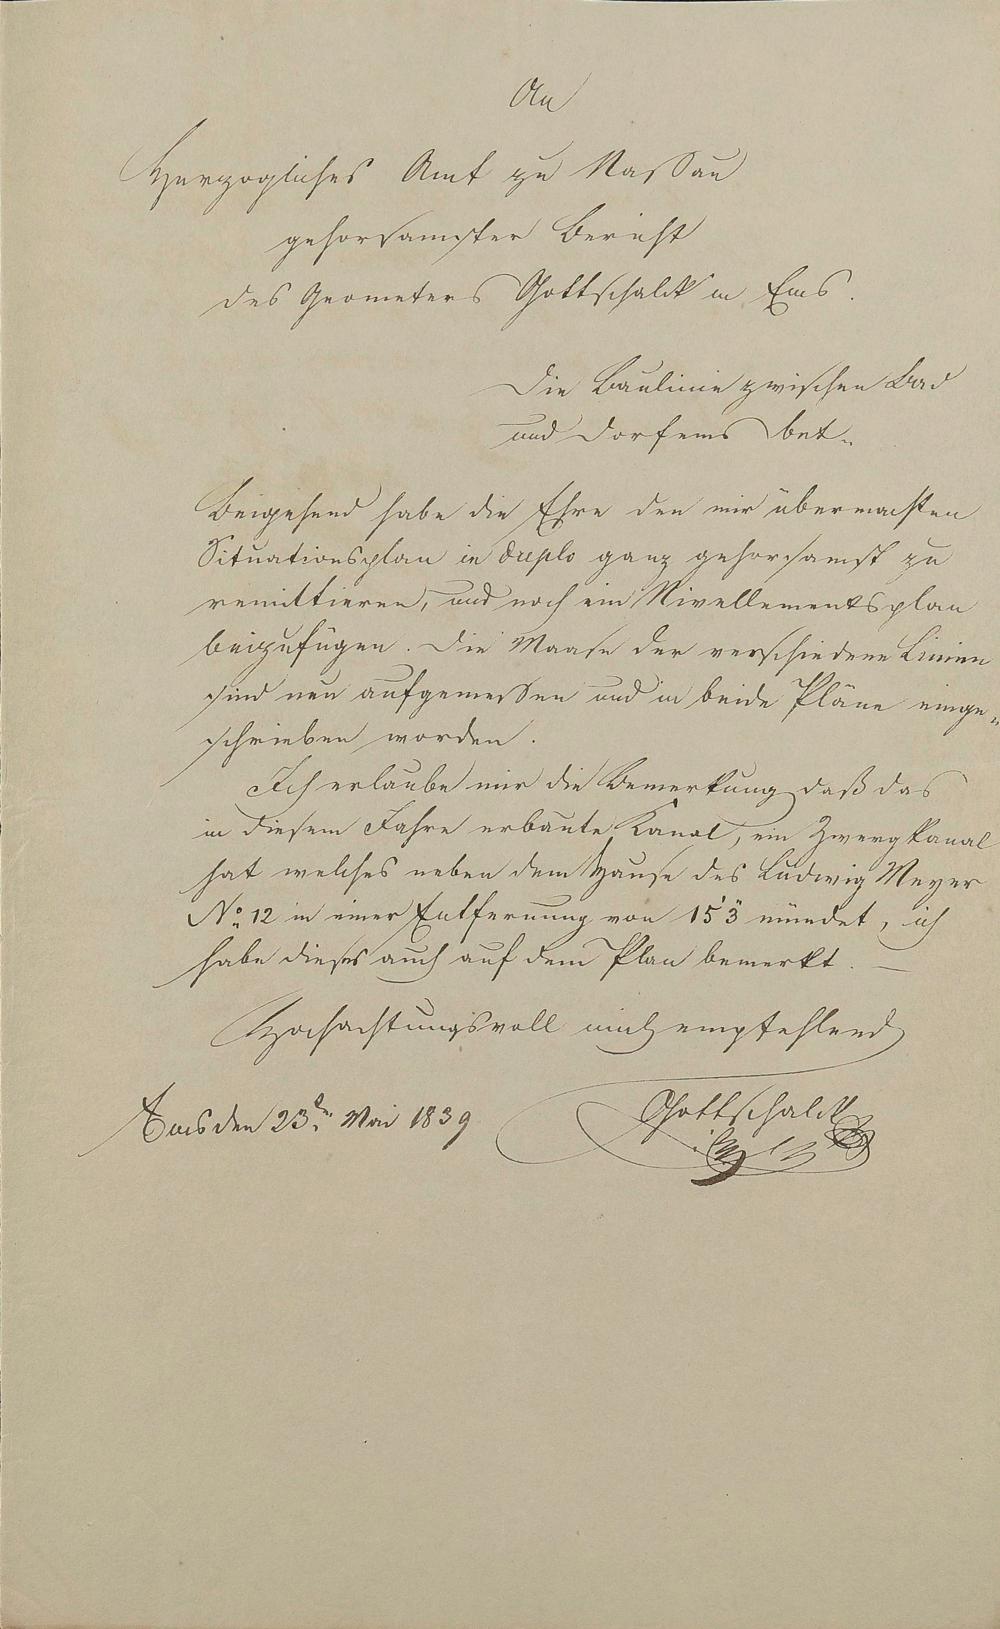 An
Herzogliches Amt zu Nassau
gehorsamster Bericht
des Geometers Gottschalck in Ems.
Die Baulinie zwischen Bad
und Dorfems bet.
Beigehend habe die Ehre den mir übermachten
Situationsplan in duplo ganz gehorsamst zu
remittieren, und noch ein Nivellementsplan
beizufügen. Die Maase der verschiedene Linien
sind neu aufgemessen und in beide Pläne einge„
schrieben worden.
Ich erlaube mir die Bemerkung daß das
in diesem Jahre erbaute Kanal, ein Zwergkanal
hat welches neben dem Hause des Ludwig Meyer
No 12 in einer Entfernung von 15' 3" mündet, ich
habe dieses auch auf dem Plan bemerkt. —
Hochachtungsvoll mich empfehlend
Ems den 23ten Mai 1839
Gottschalck